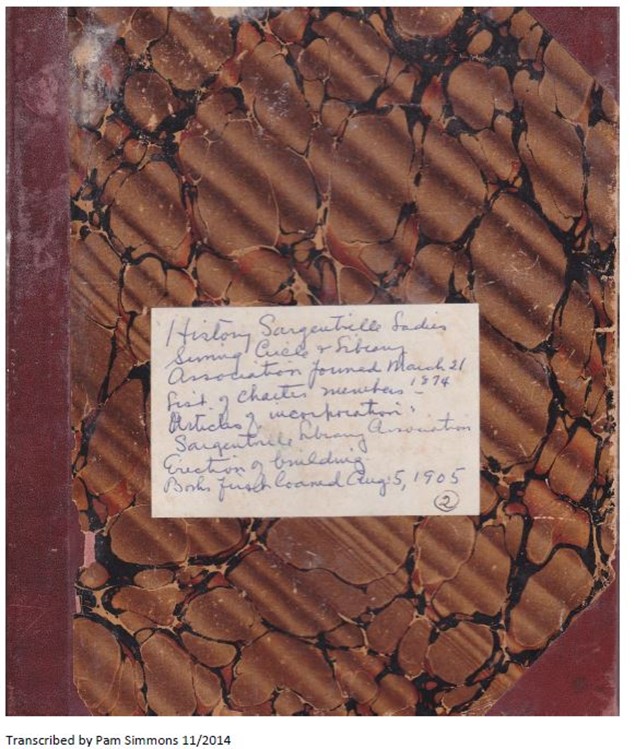 History Sargentville Ladies
Sewing Circle & Library
Association formed March 21
1874
List of Charter members -
Articles of incorporation:
Sargentville Library Association
Erection of building
Books first loaned Aug. 5, 1905
2
Transcribed by Pam Simmons 11/2014